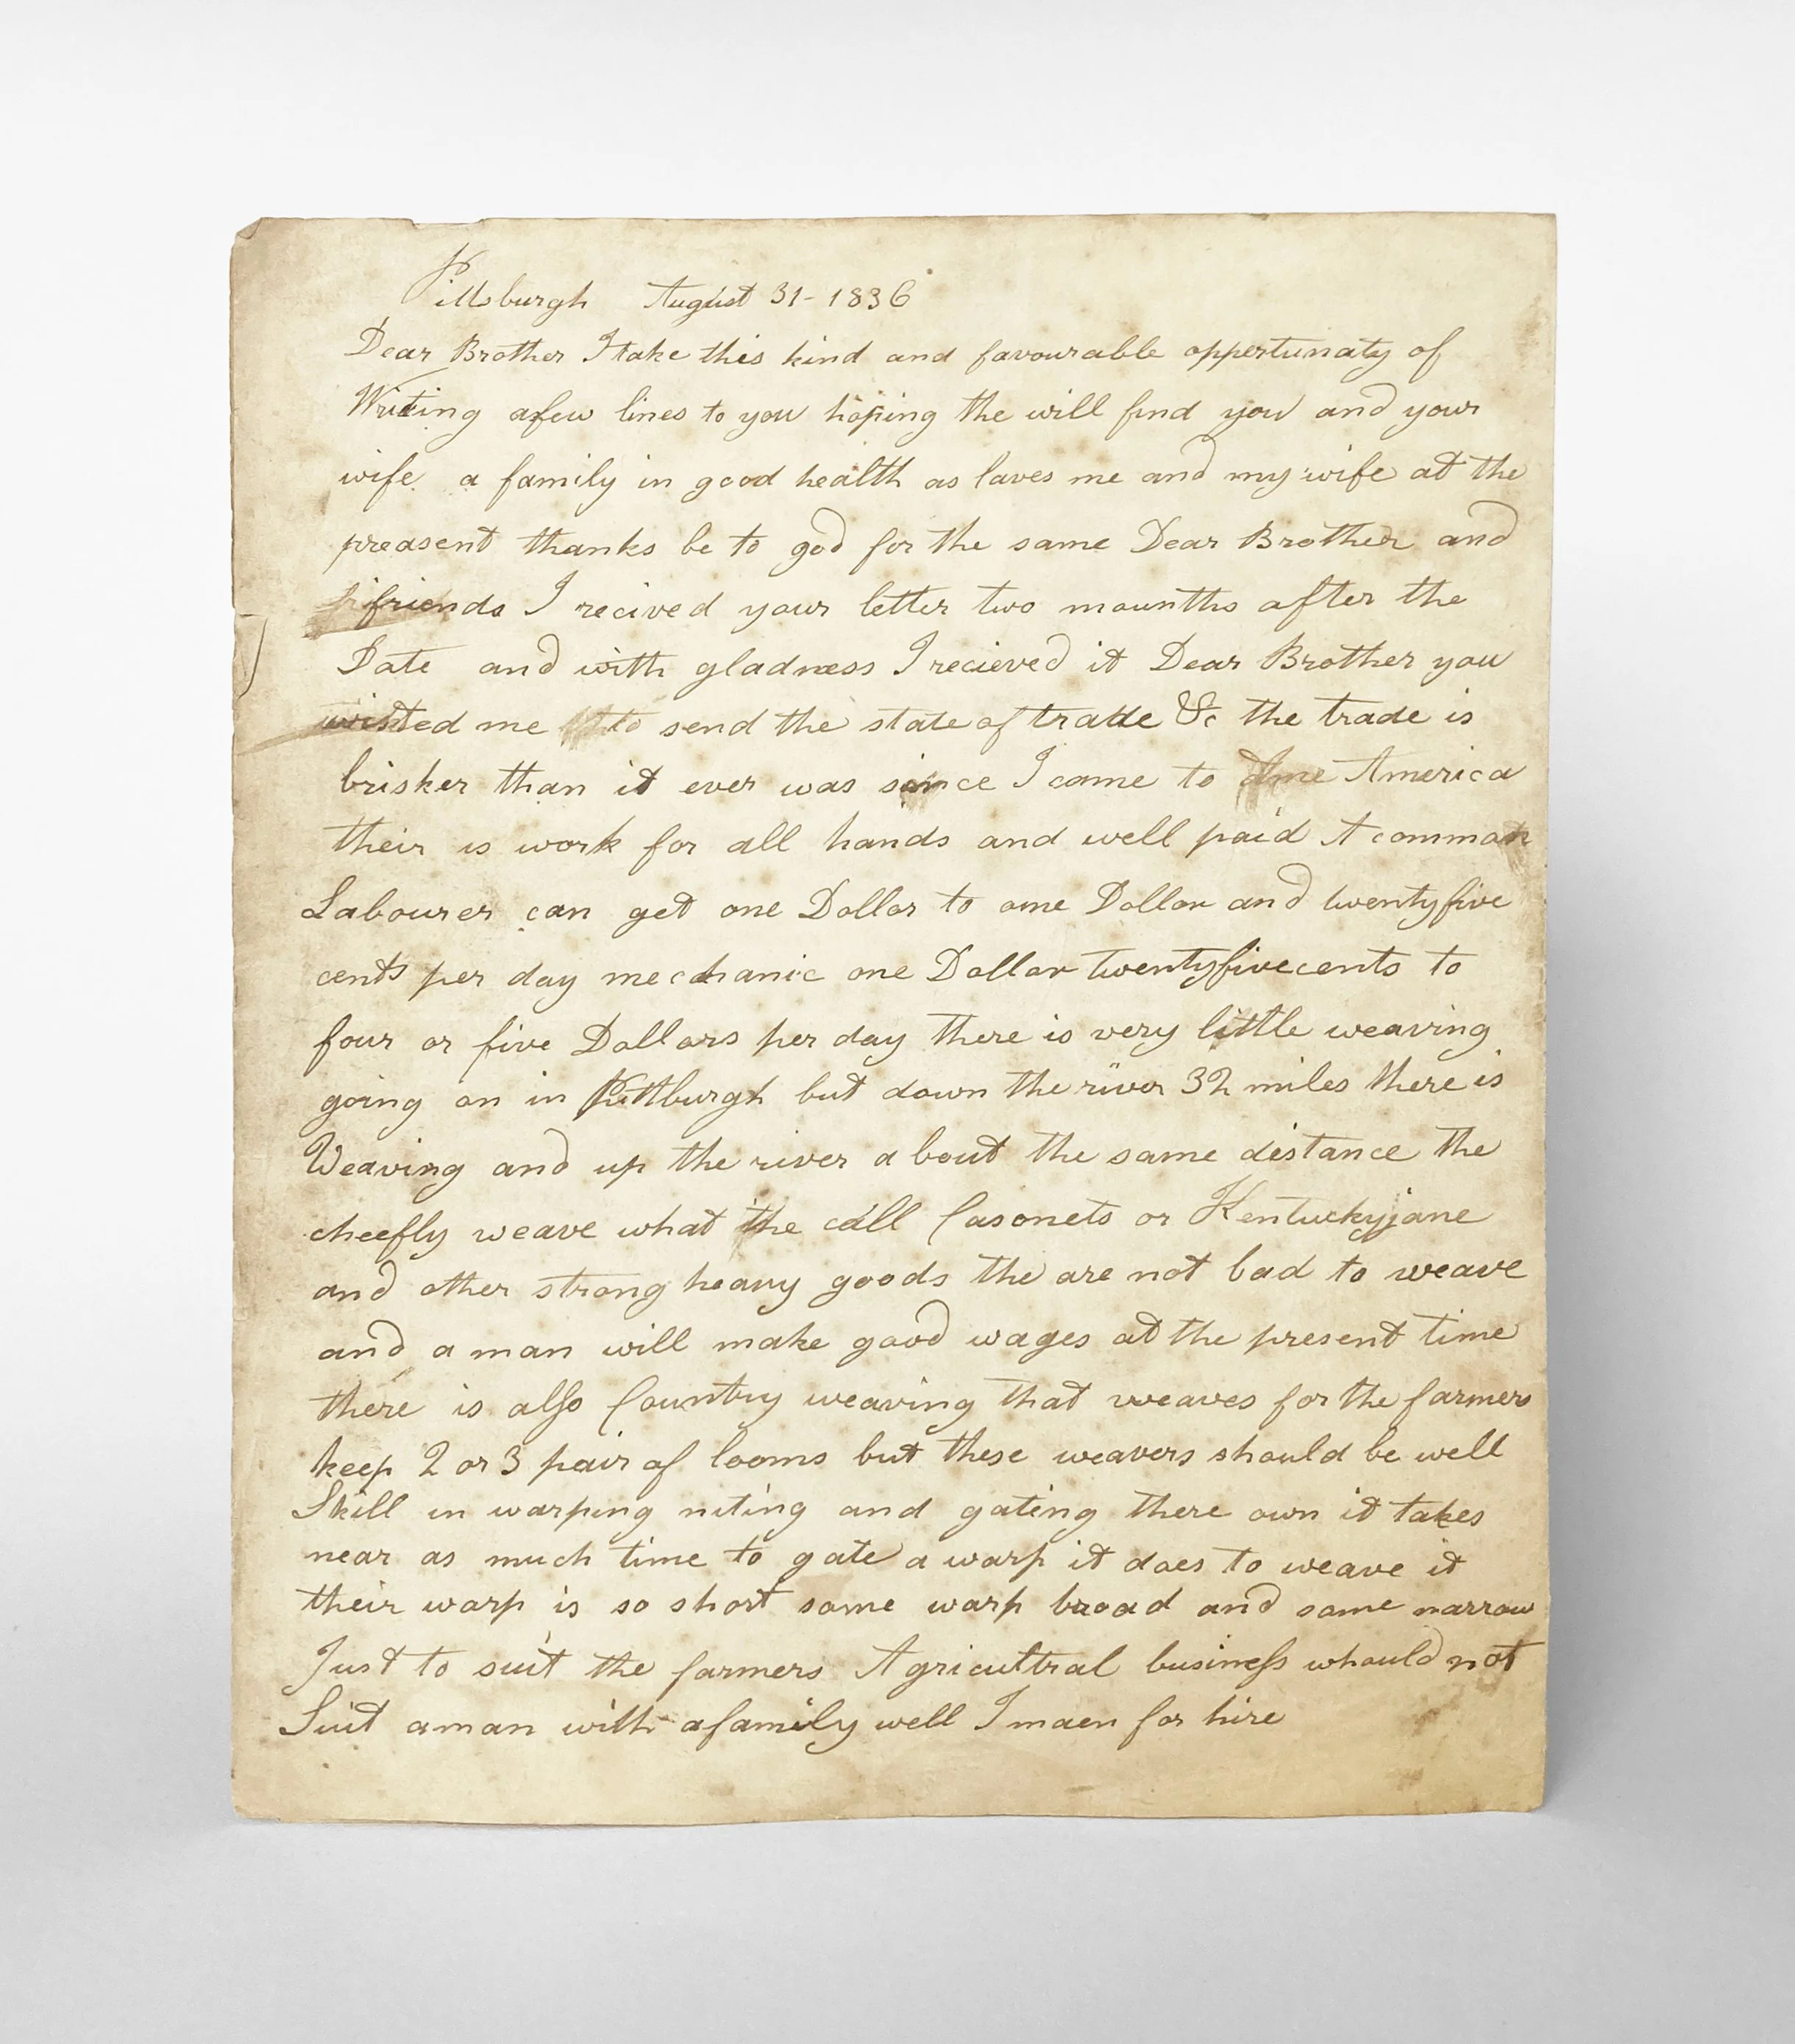 Pittsburgh August 31 - 1836
Dear Brother I take this kind and favourable oppertunaty of
Writing afew lines to you hoping the will find you and your
wife a family in good health as laves me and my wife at the
preasent thanks be to god for the same Dear Brother and
friends I recived your letter two mounths after the
Date and with gladness I recieved it Dear Brother you
wishted me to send the state of trade &c the trade is
brisker than it ever was since I came to Ame America
their is work for all hands and well paid A common
Labourer can get one Dollar to one Dollar and twentyfive
cents per day mechanic one Dollar twentyfivecents to
four or five Dollars per day there is very little weaving
going on in Pittburgh but down the river 32 miles there is
Weaving and up the river a bout the same distance the
cheefly weave what the call Casonets or Kentuckyjane
and other strong heavy goods the are not bad to weave
and a man will make good wages at the present time
there is also Country weaving that weaves for the farmers
keep 2 or 3 pair of looms but these weavers should be well
Skill in warping niting and gating there own it takes
near as much time to gate a warp it does to weave it
their warp is so short some warp broad and some narrow
Just to suit the farmers Agricultral business whould not
Suit aman with afamily well I maen for hire